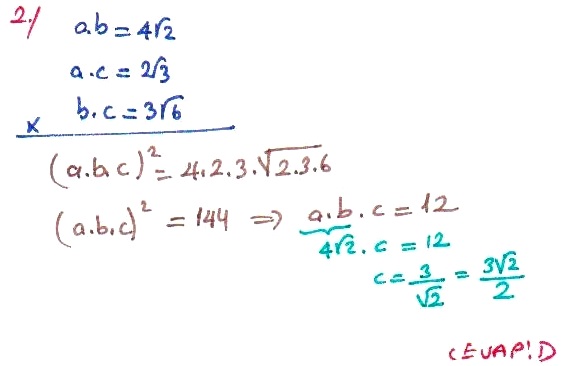 2-/ a.b = 4√2
a.c = 2√3
b.c = 3√6
x
(a.b.c)² = 4.2.3.√2.3.6
(a.b.c)² = 144 ⇒ a.b.c = 12
4√2.c = 12
c = 3/√2 = 3√2/2
CEVAP! D